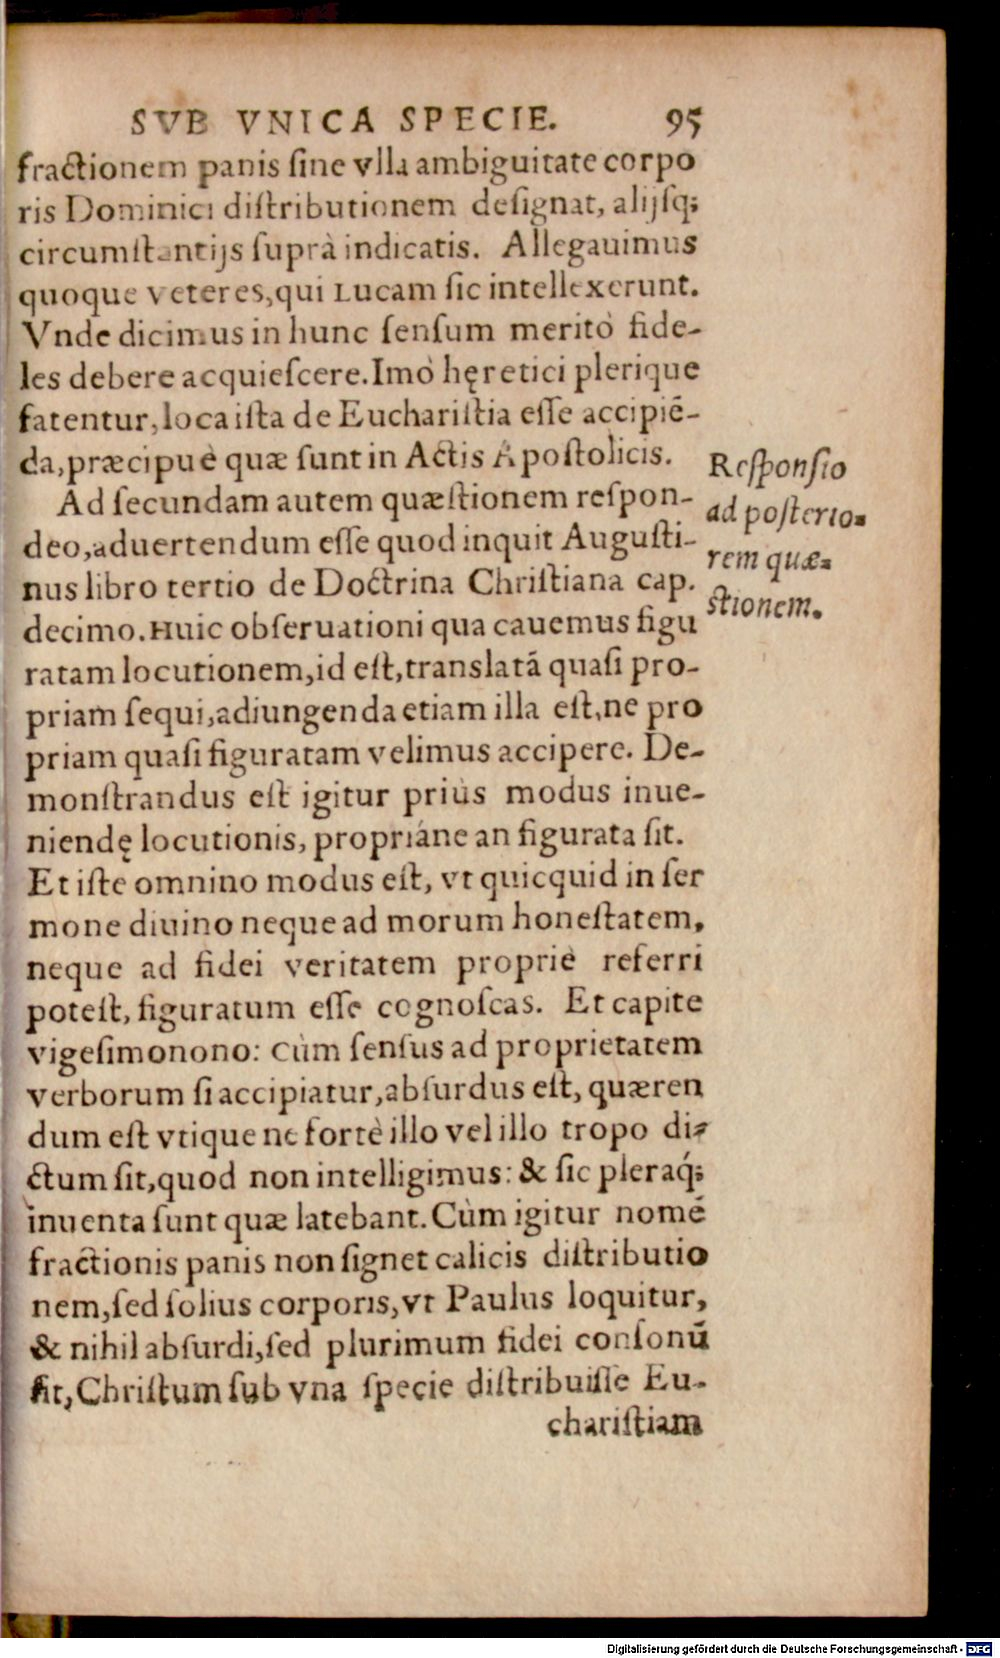 SVB VNICA SPECIE. 95
fractionem panis ſine vlla ambiguitate corpo
ris Dominici diſtributionem deſignat, alijſq;
circumſtantijs ſuprà indicatis. Allegauimus
quoque veteres,qui Lucam ſic intellexerunt.
Vnde dicimus in hunc ſenſum meritò fide-
les debere acquieſcere.Imò hęretici plerique
fatentur,loca iſta de Euchariſtia eſſe accipiē-
da,præcipuè quæ ſunt in Actis Apoſtolicis.
Ad ſecundam autem quæſtionem reſpon-
deo,aduertendum eſſe quod inquit Auguſti-
nus libro tertio de Doctrina Chriſtiana cap.
decimo.Huic obſeruationi qua cauemus figu
ratam locutionem,id eſt,translatā quaſi pro-
priam ſequi,adiungenda etiam illa eſt,ne pro
priam quaſi figuratam velimus accipere. De-
monſtrandus eſt igitur priùs modus inue-
niendę locutionis, propriáne an figurata ſit.
Et iſte omnino modus eſt, vt quicquid in ſer
mone diuino neque ad morum honeſtatem,
neque ad fidei veritatem propriè referri
poteſt, figuratum eſſe cognoſcas. Et capite
vigeſimonono: Cùm ſenſus ad proprietatem
verborum ſi accipiatur,abſurdus eſt, quæren
dum eſt vtique ne fortè illo vel illo tropo di-
ctum ſit,quod non intelligimus: & ſic pleraq́;
inuenta ſunt quæ latebant.Cùm igitur nomē
fractionis panis non ſignet calicis diſtributio
nem,ſed ſolius corporis,vt Paulus loquitur,
& nihil abſurdi,ſed plurimum fidei conſonū
ſit,Chriſtum ſub vna ſpecie diſtribuiſſe Eu-
chariſtiam
Reſponſio
ad poſterio-
rem quæ-
ſtionem.
Digitalisierung gefördert durch die Deutsche Forschungsgemeinschaft - DFG